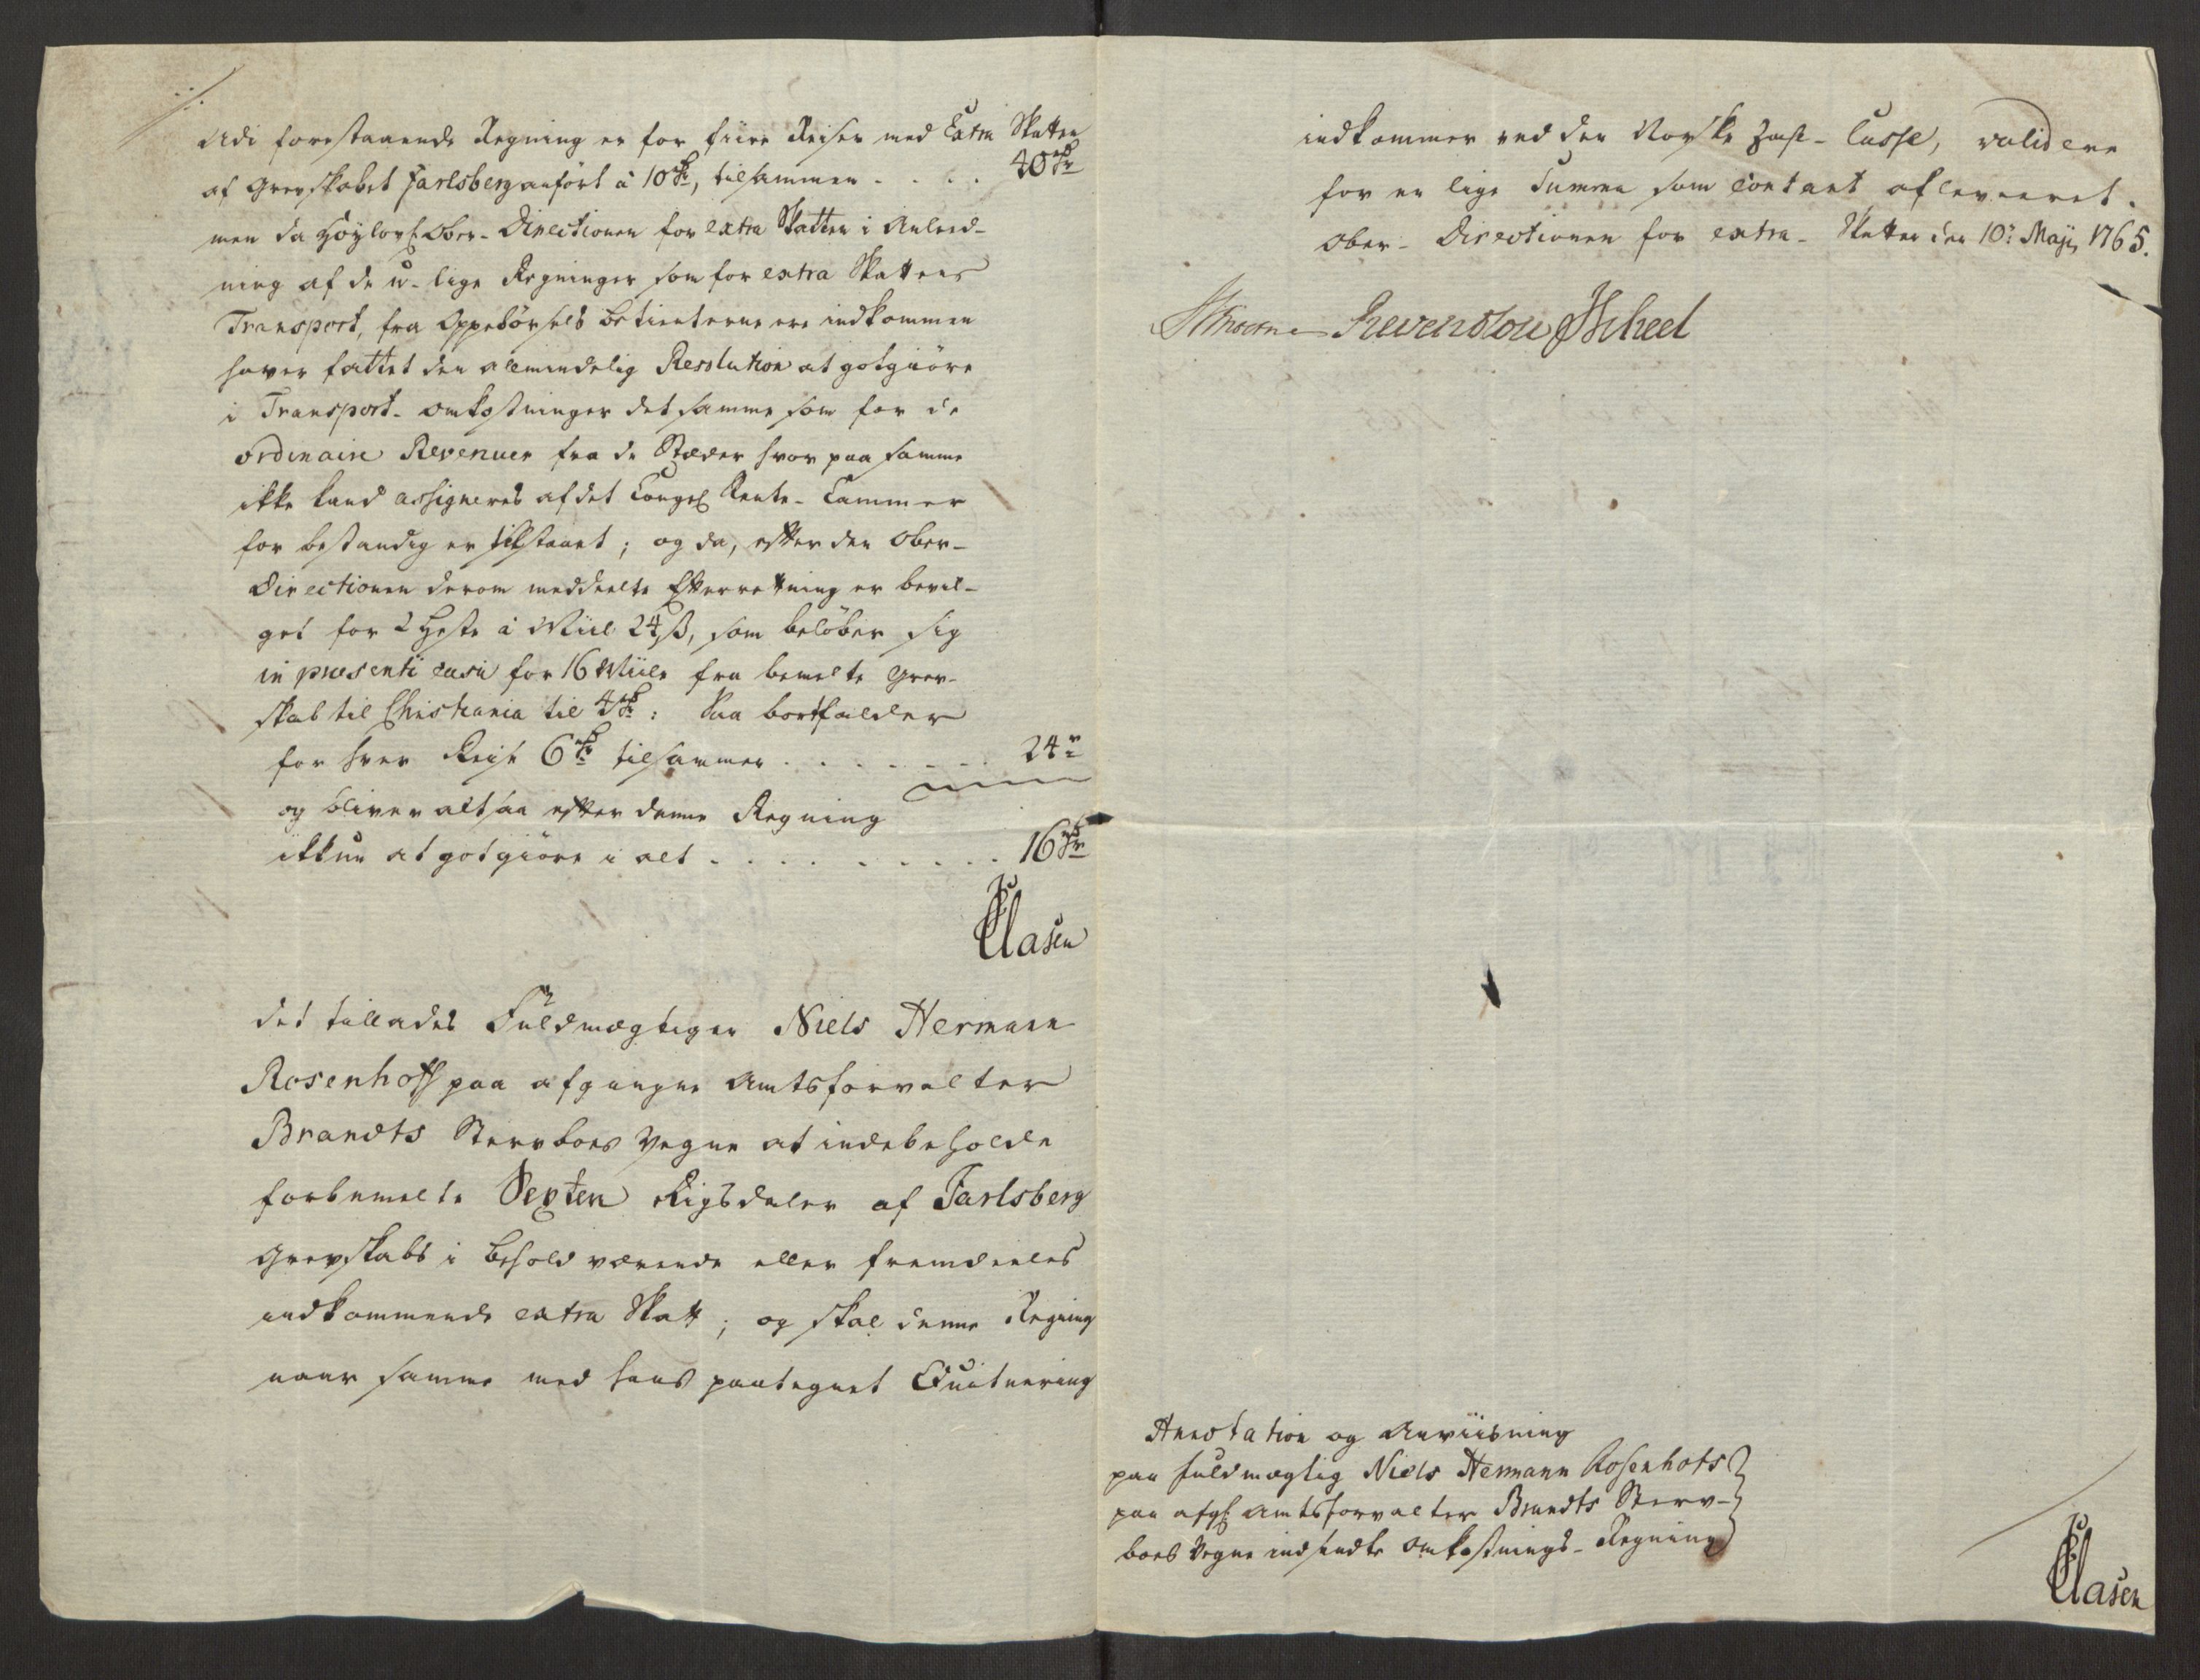 Udi forestaaende Regning er for fiire Reiser med Extra Skatten
af Grevskabet Jarlsberg anført à 10 rdr, tilsammen . . . . 40 rdr
men da Høylovl. Ober-Directionen for extra Skatten i Anled-
ning af de u-lige Regninger som for extra Skattens
Transport, fra Oppebørsels Betienterne ere indkommen
haver fattet den almindelig Resolution at gotgiøre
i Transport-omkostninger det samme som for de
ordinaire Revenuer fra de Stæder hvor paa samme
ikke kand assigneres af det Kongel Rente-Cammer
for bestandig er tilstaaet; og da, efter den Ober-
Directionen derom meddeelte Efterretning er bevil-
get for 2 Heste à Miil 24 ß, som beløber sig
in præsenti casu for 16 Miile fra bemelte Grev-
skab til Christiania til 4 rdr: Saa bortfalder
for hver Reise 6 rdr tilsammen . . . . . . . 24 "
og bliver altsaa efter denne Regning
ikkun at gotgiøre i alt . . . . . . . . . 16 rdr
Clasen
det tillades Fuldmægtigen Niels Hermann
Rosenhoff paa afgangne Amtsforvalter
Brandts Sterboes Vegne at indebeholde
forbemelte Sexten Rigsdaler af Jarlsberg
Grevskabs i Behold værende eller fremdeeles
indkommende extra Skatt; og skal denne Regning
naar samme med hans paategnet Qvitering
indkommer ved den Norske Zahl-Casse, validere
for en lige Summa som contant afleveeret.
Ober-Directionen for extra-Skatten den 10: Maji 1765.
Reventlow JScheel
Annotation og Anviisning
paa fuldmægtig Niels Hermann Rosenhofs
paa afgl. Amtsforvalter Brandts Sterv-
boes Vegne indsendte Omkostnings-Regning
Clasen